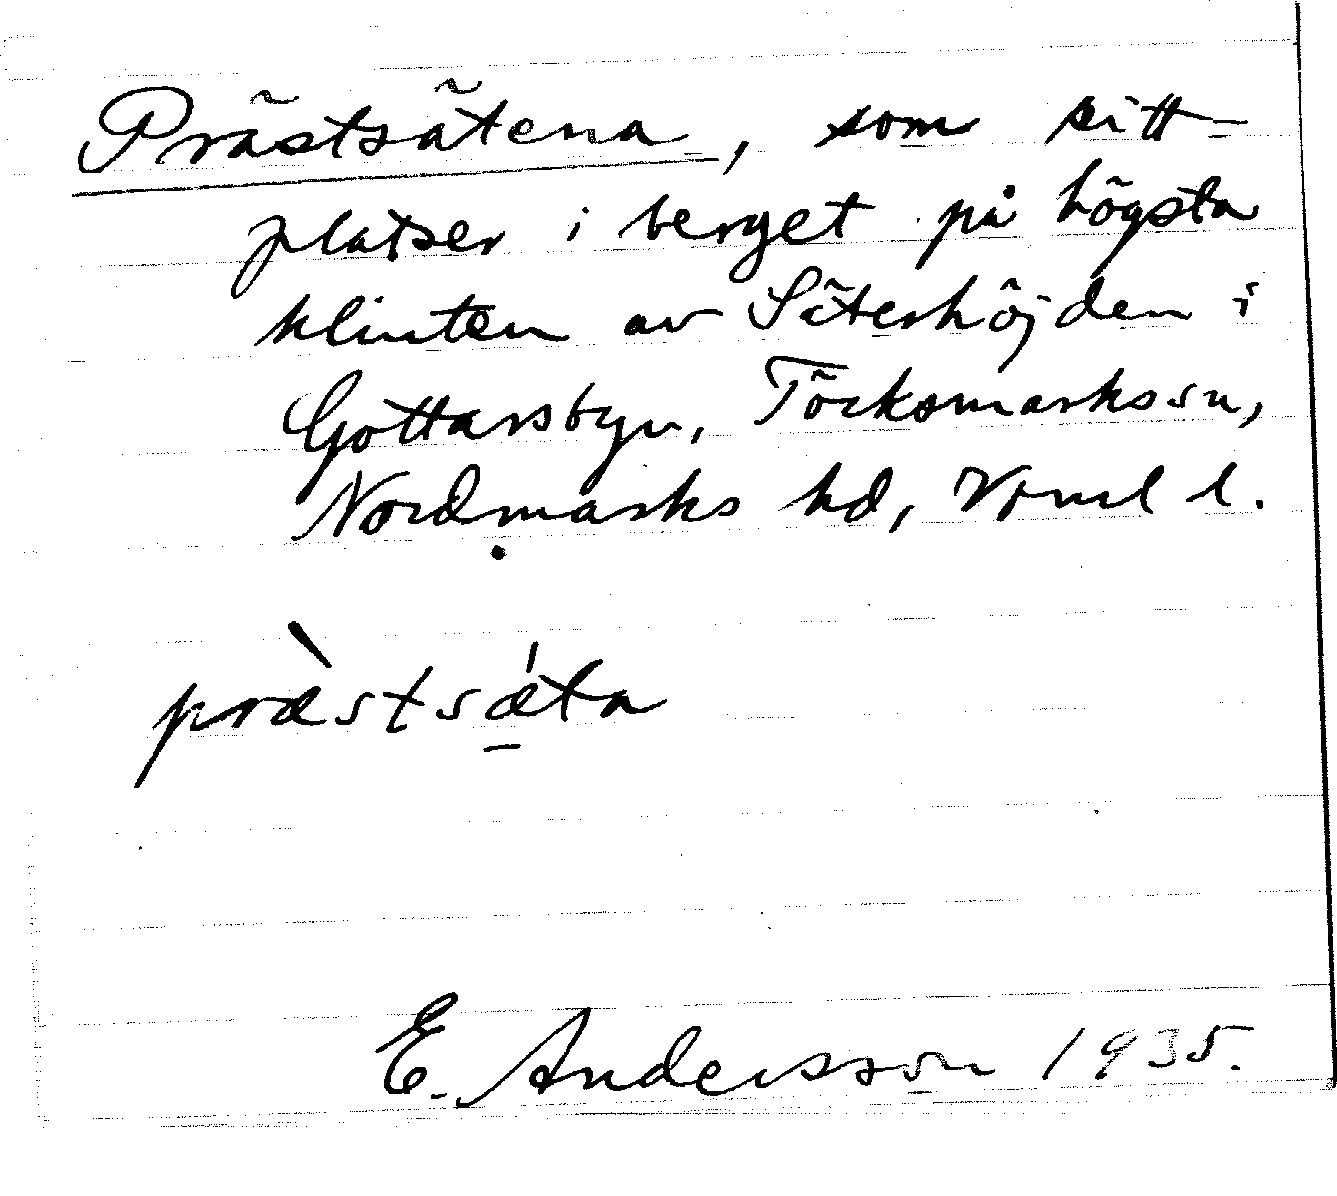 Prästsätena, som sitt-
platser i berget på högsta
klinten av Säterhöjden i
Gottarsbyn, Töcksmarks sn,
Nordmarks hd, Vrml l.
præ̀stsǽ̱ta
E. Andersson 1935.